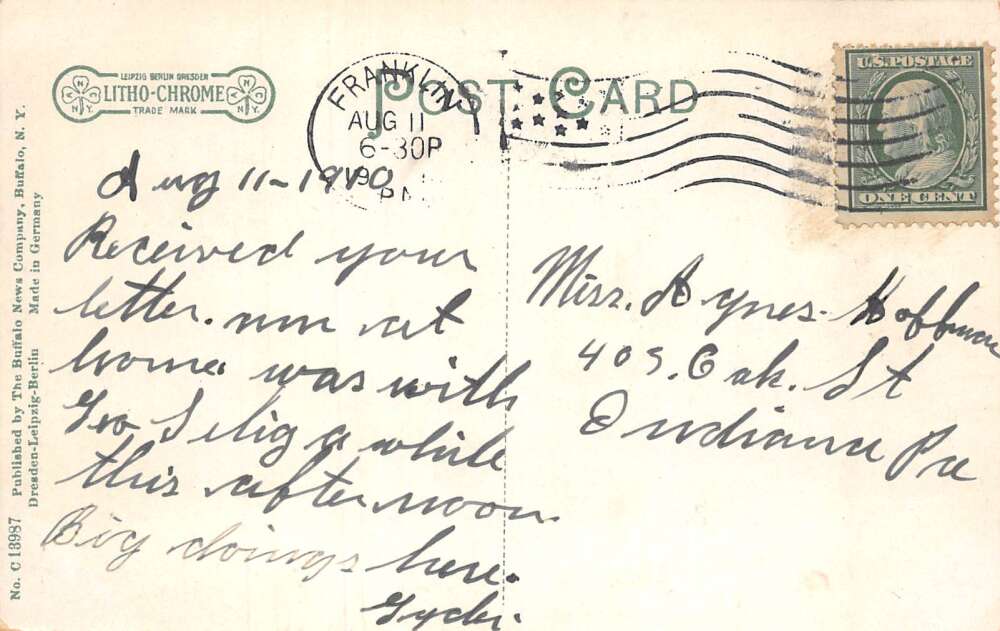 No. C 13987 Published by The Buffalo News Company, Buffalo, N. Y.
Dresden-Leipzig-Berlin Made in Germany
LEIPZIG BERLIN DRESDEN
LITHO-CHROME
TRADE MARK
N N
N.Y. N.Y.
POST CARD
FRANKLIN
AUG 11
6-30P
U.S. POSTAGE
ONE CENT
Aug 11-1910
Received your
letter. am at
home was with
Geo Selig a while
this afternoon.
Big doings here.
Miss. Agnes. Hoffman
405. Oak. St
Indiana Pa